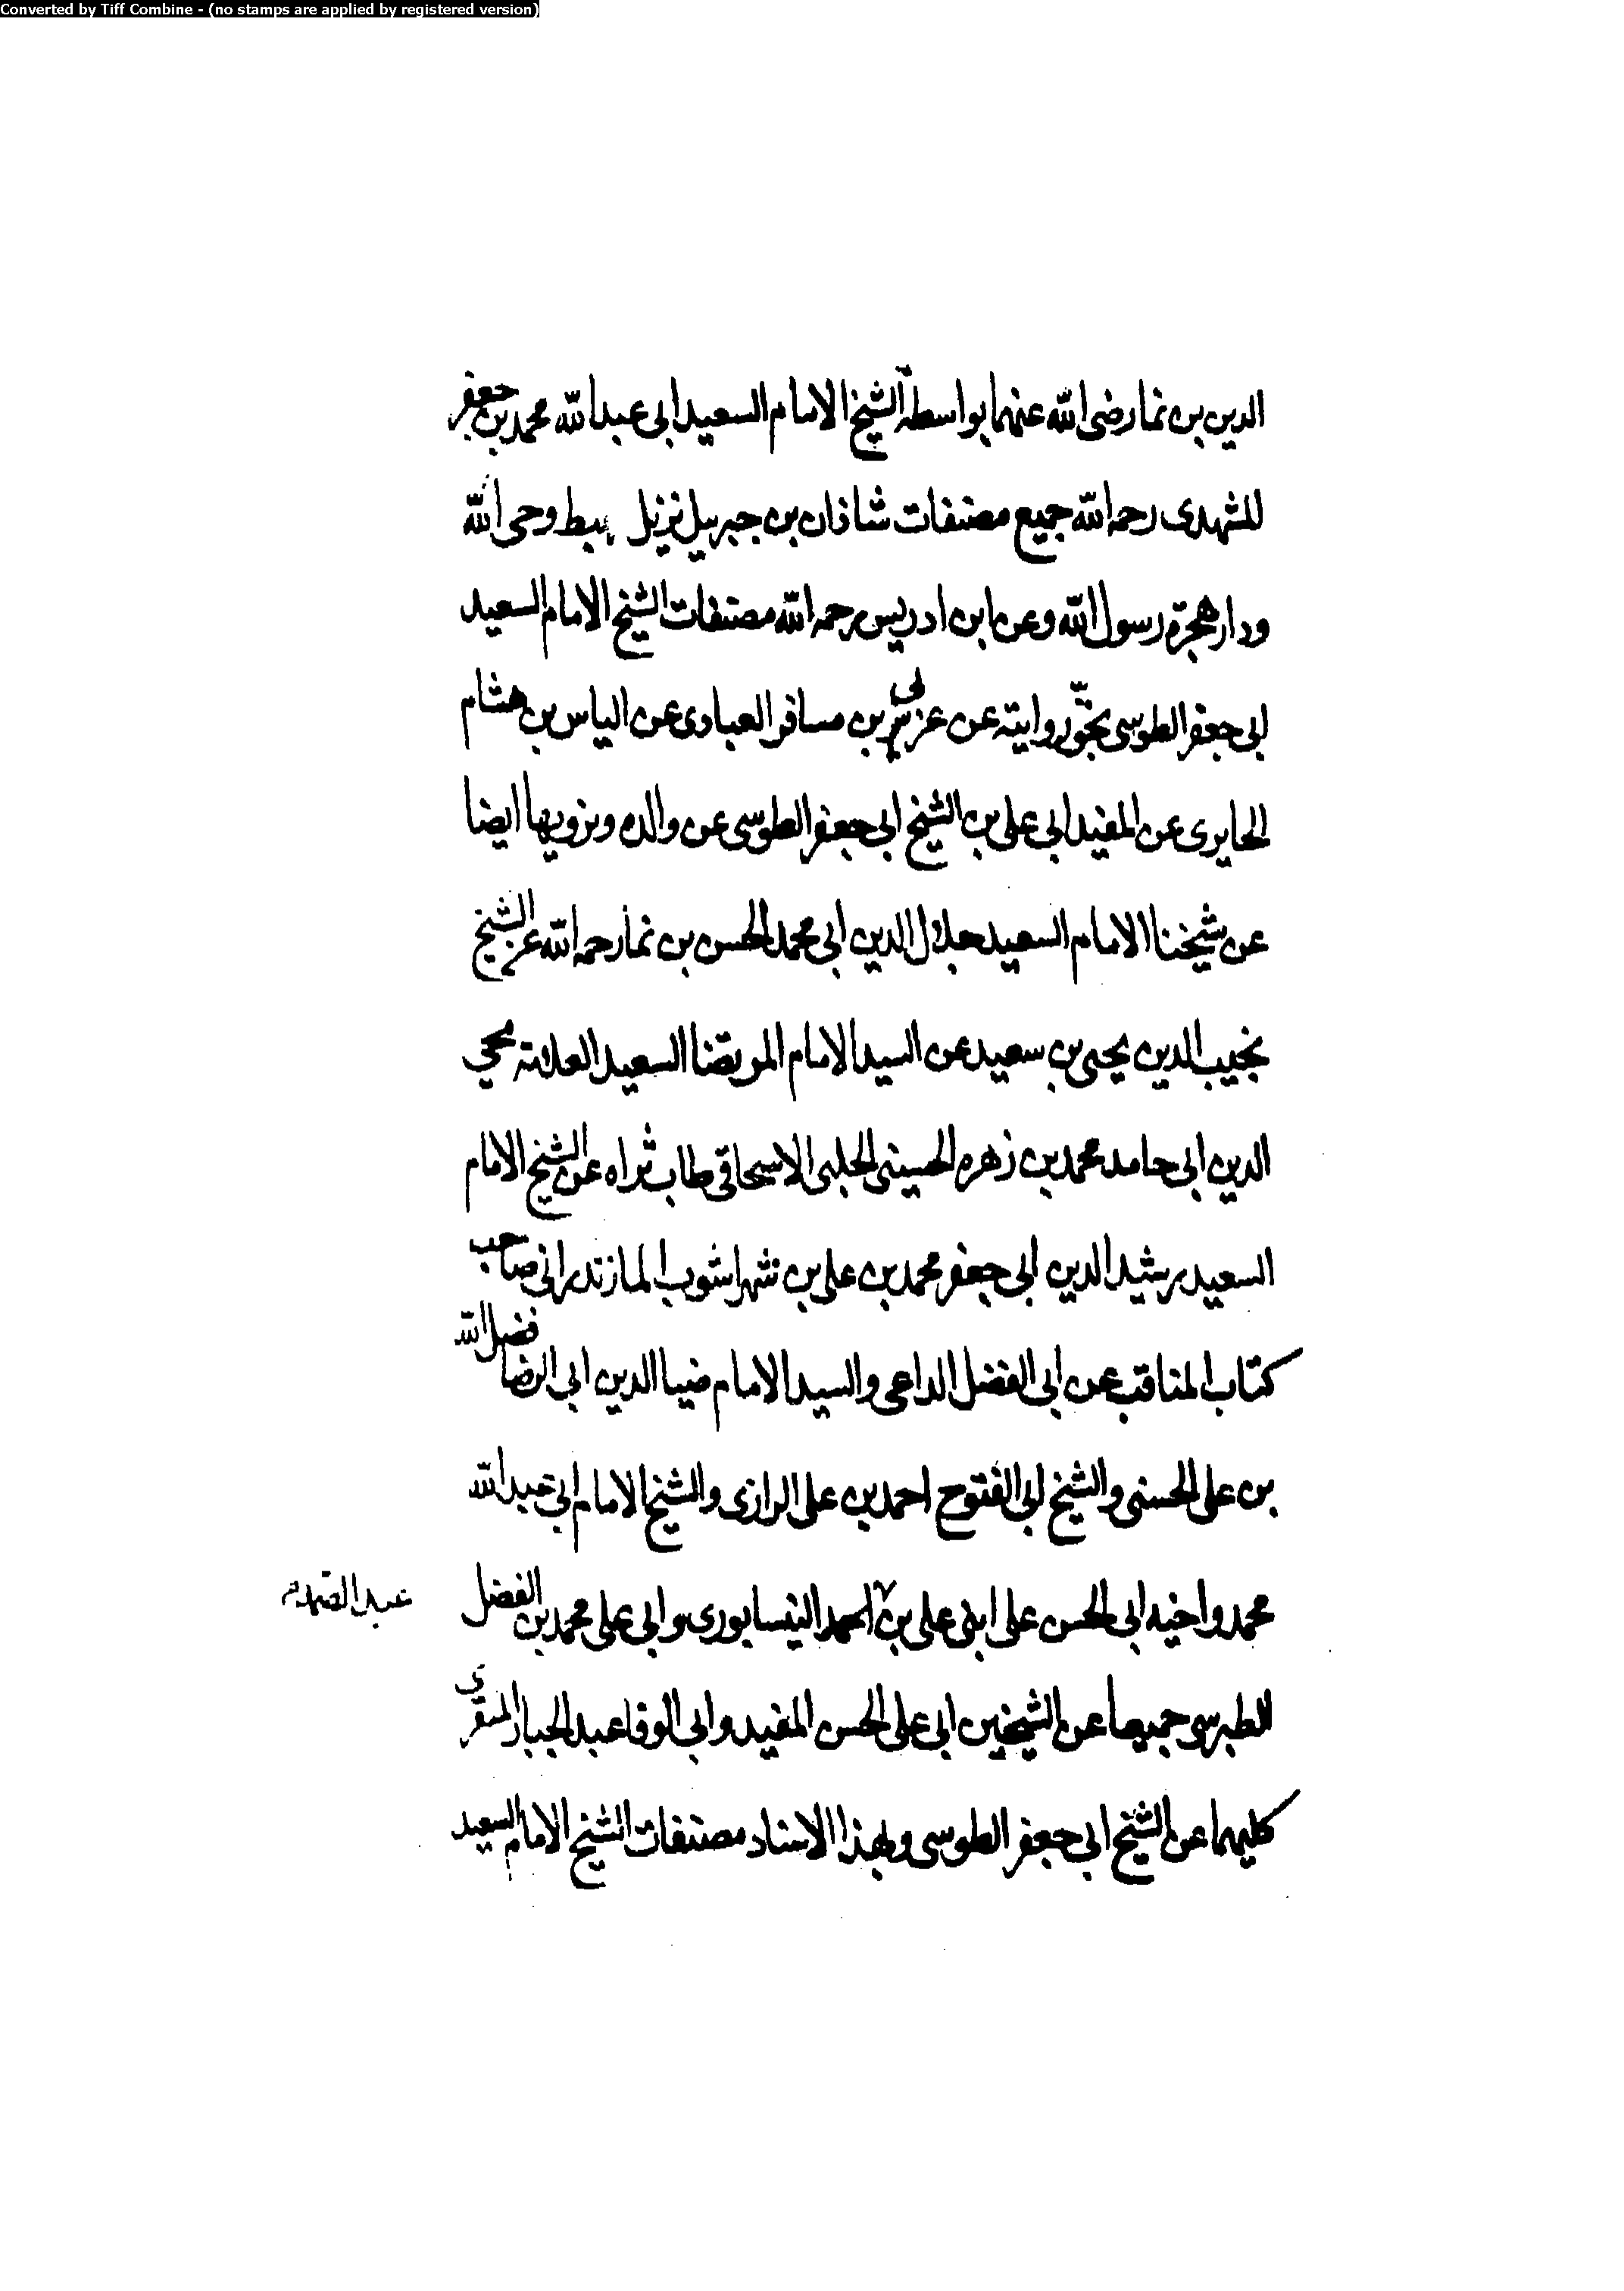 Converted by Tiff Combine - (no stamps are applied by registered version)
الدين بن نما رضى الله عنهما بواسطة الشيخ الامام السعيد ابى عبد الله محمد بن جعفر
المشهدى رحمه الله جميع مصنفات شاذان بن جبرييل نزيل مهبط وحى الله
ودار هجرة رسول الله وعن ابن ادريس رحمه الله مصنفات الشيخ الامام السعيد
ابى جعفر الطوسى بحق روايته عن عربى بن مسافر العبادى عن الياس بن هشام
الحايرى عن المفيد ابى على بن الشيخ ابى جعفر الطوسى عن والده ونرويها ايضا
عن شيخنا الامام السعيد جلال الدين ابى محمد الحسن بن نما رحمه الله عن الشيخ
نجيب الدين يحيى بن سعيد عن السيد الامام المرتضا السعيد العلامة محيي
الدين ابى حامد محمد بن زهره الحسينى الحلبى الاسحاقى طاب ثراه عن الشيخ الامام
السعيد رشيد الدين ابى جعفر محمد بن على بن شهراشوب المازندرانى صاحب
كتاب المناقب عن ابى الفضل الداعى والسيد الامام ضيا الدين ابى الرضا فضل الله
بن على الحسنى والشيخ ابى الفتوح احمد بن على الرازى والشيخ الامام ابى عبد الله
محمد واخيه ابى الحسن على ابنى على بن احمد النيسابورى وابى على محمد بن الفضل
عبد الصمد م
الطبرسى جميعا عن الشيخين ابى على الحسن المفيد وابى الوفا عبد الجبار المقرى
كليهما عن الشيخ ابى جعفر الطوسى وبهذا الاسناد مصنفات الشيخ الامام السعيد